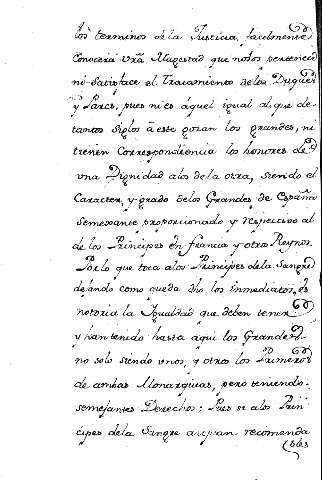 los terminos de la Justicia, facilmente
Conocerá vrã Magestad que no les pertenece
ni satisface el Tratamiento de los Duques
y Pares, pues ni es aquel igual al que de
tantos siglos a este gozan los grandes, ni
tienen Correspondiencia los honores de
vna Dignidad a los de la otra, siendo el
Caracter, y grado delos Grandes de España
semexante proporcionado y respectivo al
de los Principes en francia y otros Reynos.
Por lo que toca alos Principes dela Sangre
dejando como queda dho los inmediatos, es
notoria la Igualdad que deben tener
y han tenido hasta aqui los Grandes
no solo siendo vnos, y otros los Primeros
de ambas Monarquias, pero teniendo
semejantes Derechos; Pues si alos Prin
cipes dela Sangre assisten recomenda
bles